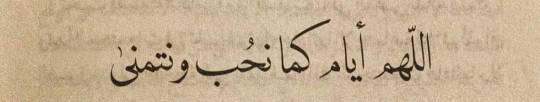 اللّهم أيام كما نحُب ونتمنىٰ